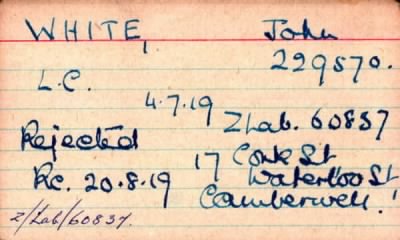 WHITE, John
229570.
L.C.
4.7.19
Rejected Z Lab. 60837
17 Cork St
Rc. 20.8.19 Waterloo St
Camberwell.
Z/Lab/60837.